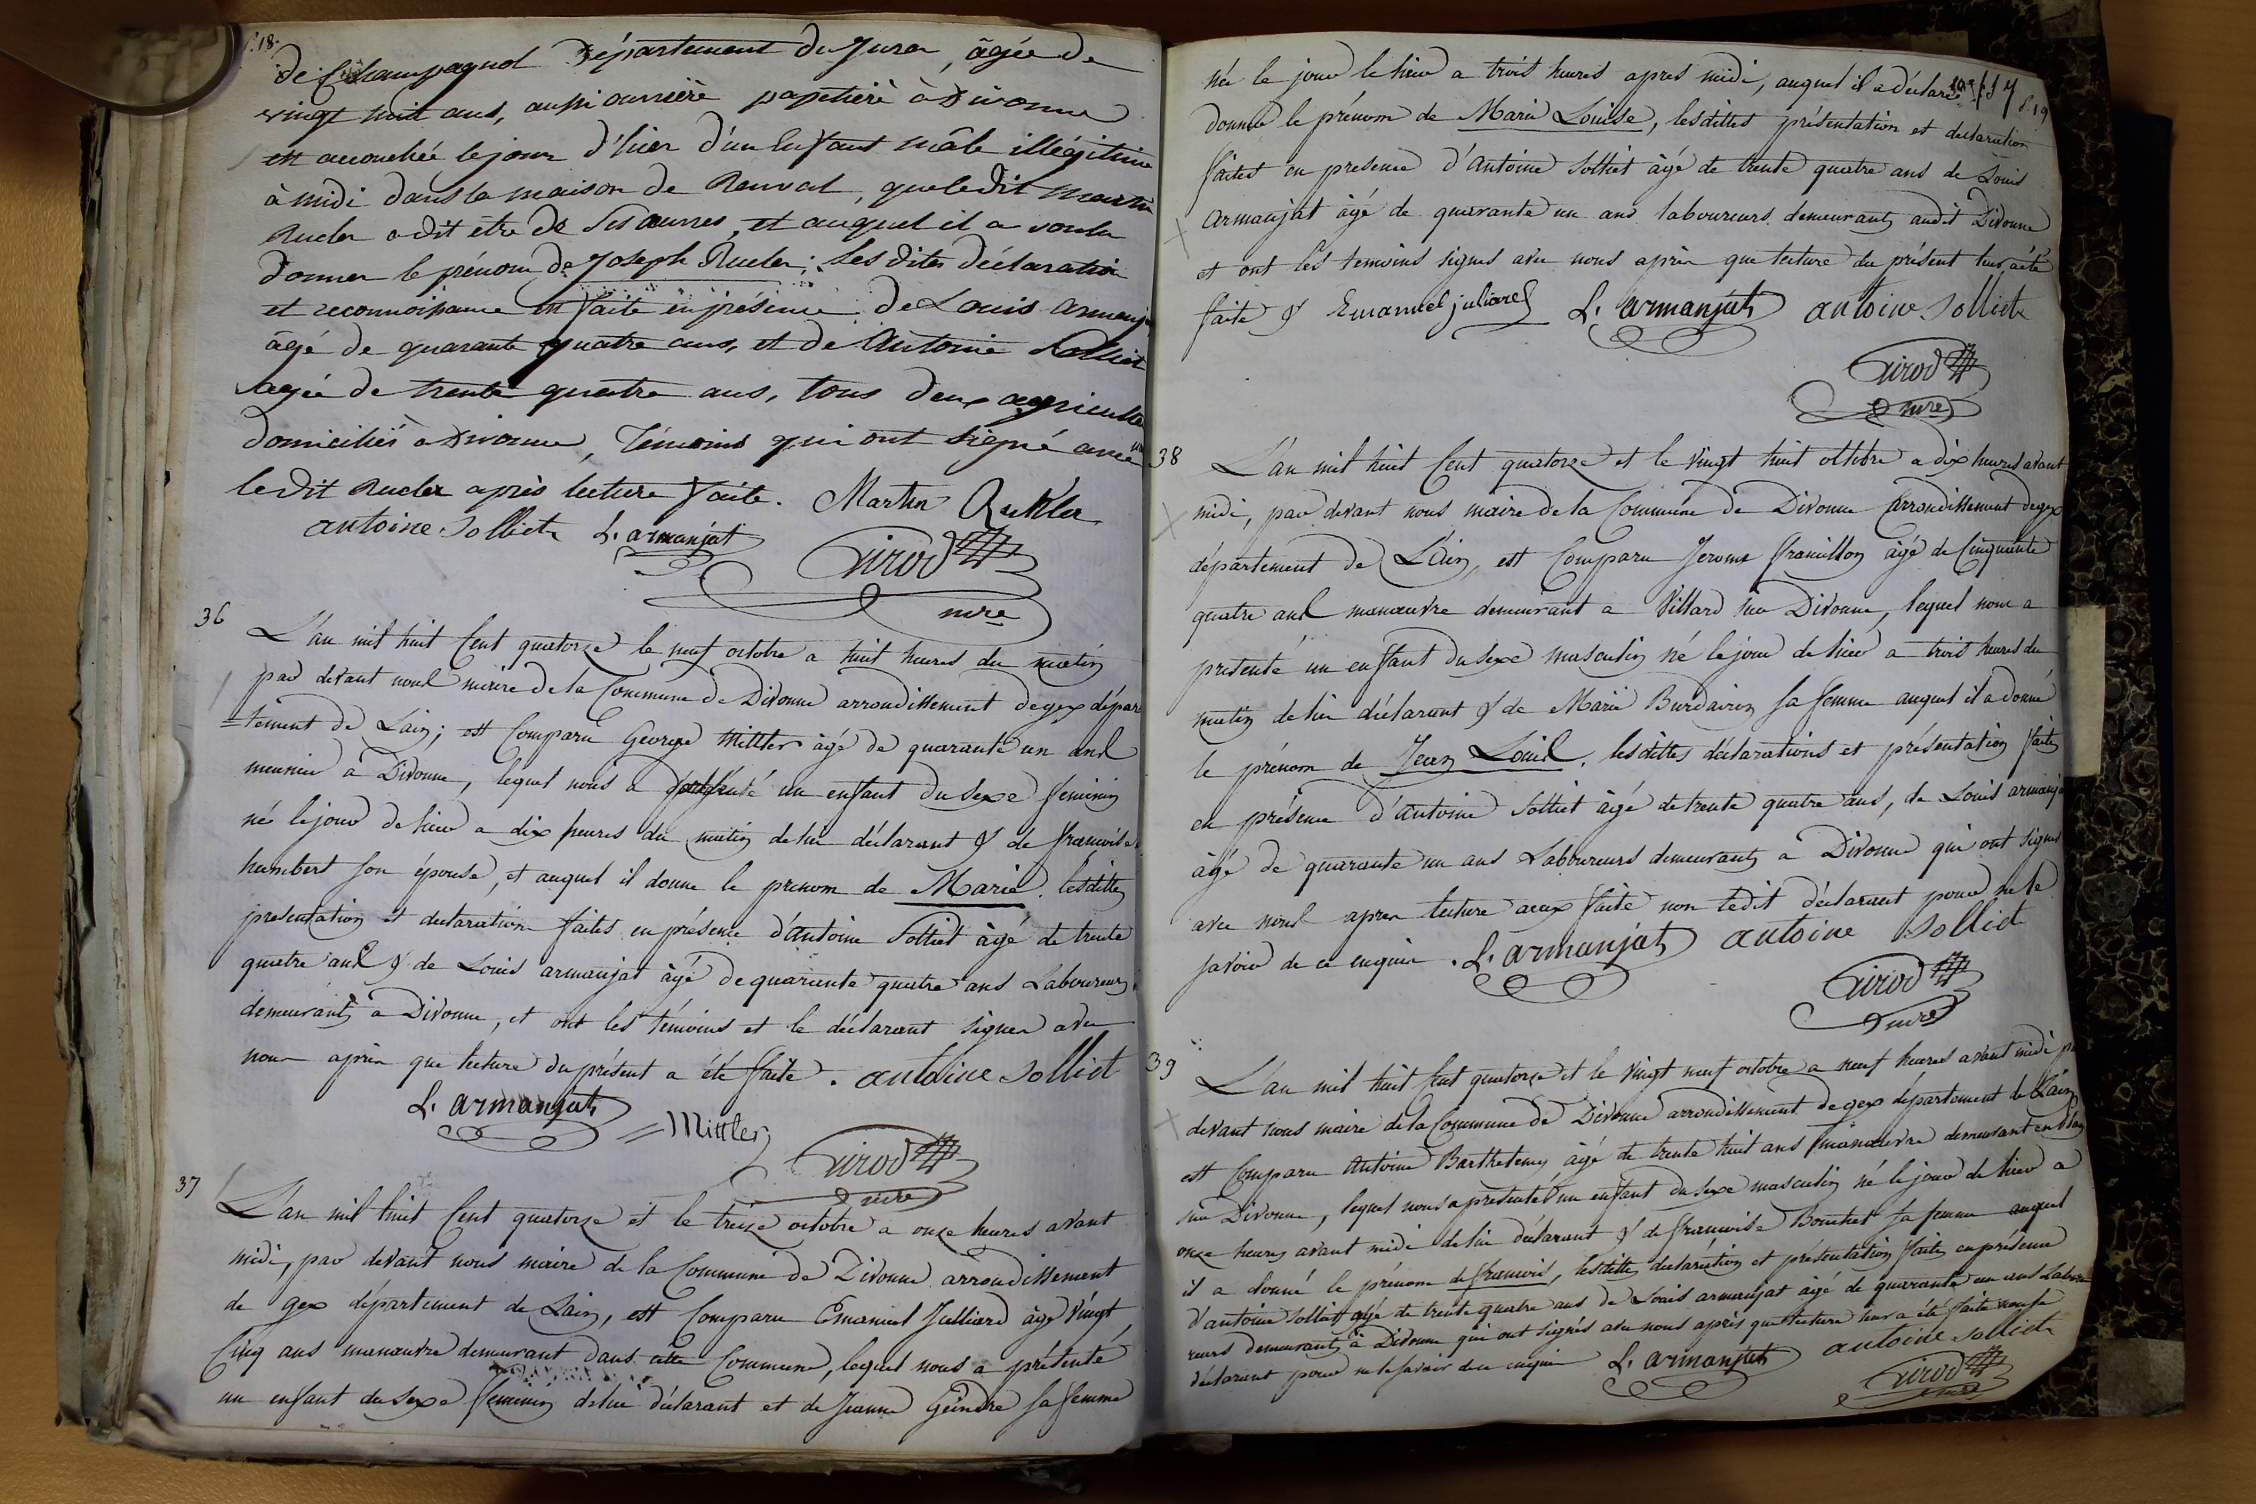 f. 18.
de Champagnol Département du Jura, âgée de
vingt huit ans, aussi ouvrière papetière à Divonne
est accouchée le jour d'hier d'un Enfant mâle illégitime
à midi dans la maison de Rouvat, que le dit Martin
Rueler a dit etre de ses œuvres, et auquel il a voulu
donner le prénom de Joseph Rueler; Les dites déclaration
et reconnoissance est faite en présence de Louis Armanj
âgé de quarante quatre ans, et de Antoine Solliet
agée de trente quatre ans, tous deux agriculte
domiciliés à Divonne, Témoins qui ont signé avec
le dit Rueler après lecture faite. Martin
antoine Solliet L. armanjat
Girod
mre
36
L'an mil huit Cent quatorze le neuf octobre a huit heures du matin
par devant nous maire de la Commune de Divonne arrondissement de gex dépar
=tement de Lain; est Comparu George Mittler âgé de quarante un ans
meunier a Divonne, lequel nous a présenté un enfant du sexe feminin
né le jour de hier a dix heures du matin de lui déclarant & de francoise
humbert son épouse, et auquel il donne le prenom de Marie. lesdittes
presentation et declaration faites en présence d'antoine Solliet âgé de trente
quatre ans & de Louis armanjat âgé de quarante quatre ans Laboureurs
demeurants a Divonne, et ont les témoins et le déclarant signer avec
nous après que lecture du présent a été faite. antoine Solliet
L. armanjat
=Mittler
Girod
mre
37
L'an mil huit Cent quatorze et le treize octobre a onze heures avant
midi, par devant nous maire de la Commune de Divonne arrondissement
de gex département de Lain, est Comparu Emanuel Julliard âgé vingt
Cinq ans manœuvre demeurant dans cette Commune, lequel nous a présenté
un enfant du sexe feminin de lui déclarant et de Jeanne Geindre sa femme
née le jour de hier a trois heures apres midi, auquel il a déclaré
819
donner le prénom de Marie Louise, lesdittes présentation et declaration
faites en presence d'Antoine Solliet âgé de trente quatre ans de Louis
Armanjat âgé de quarante un ans laboureurs demeurants audit Divonne
et ont les temoins signes avec nous après que lecture du présent leur a été
faite & Emanuel juliard L. armanjat antoine Solliet
Girod
mre
38
L'an mil huit Cent quatorze et le vingt huit octobre a dix heures avant
midi, par devant nous maire de la Commune de Divonne arrondissement de gex
département de L'ain, est Comparu Jerome francillon âgé de Cinquante
quatre ans manœuvre demeurant a Villard sur Divonne, lequel nous a
présenté un enfant du sexe masculin né le jour de hier a trois heures du
matin de lui déclarant & de Marie Burdairon sa femme auquel il a donné
le prénom de Jean Louis. lesdittes déclarations et présentation faites
en présence d'Antoine Solliet âgé de trente quatre ans, de Louis armanja
âgé de quarante un ans Laboureurs demeurants a Divonne qui ont signes
avec nous apres lecture a eux faite non ledit déclarant pour ne le
savoir de ce enquis. L. armanjat antoine Solliet
Girod
mre
39
L'an mil huit Cent quatorze et le vingt neuf octobre a neuf heures avant midi p
devant nous maire de la Commune de Divonne arrondissement de gex département de L'ain
est Comparu Antoine Barthelemy âgé de trente huit ans manœuvre demeurant
sur Divonne, lequel nous a présenté un enfant du sexe masculin né le jour de hier a
onze heures avant midi de lui déclarant & de francoise Bouchet sa femme auquel
il a donné le prénom de francois, lesdittes declaration et présentation faites en présence
d'antoine Solliet agé de trente quatre ans de Louis armanjat âgé de quarante un ans Labou
reurs demeurants à Divonne qui ont signés avec nous après que lecture leur a été faite
déclarant pour ne le savoir de ce enquis L. armanjat antoine Solliet
Girod
mre